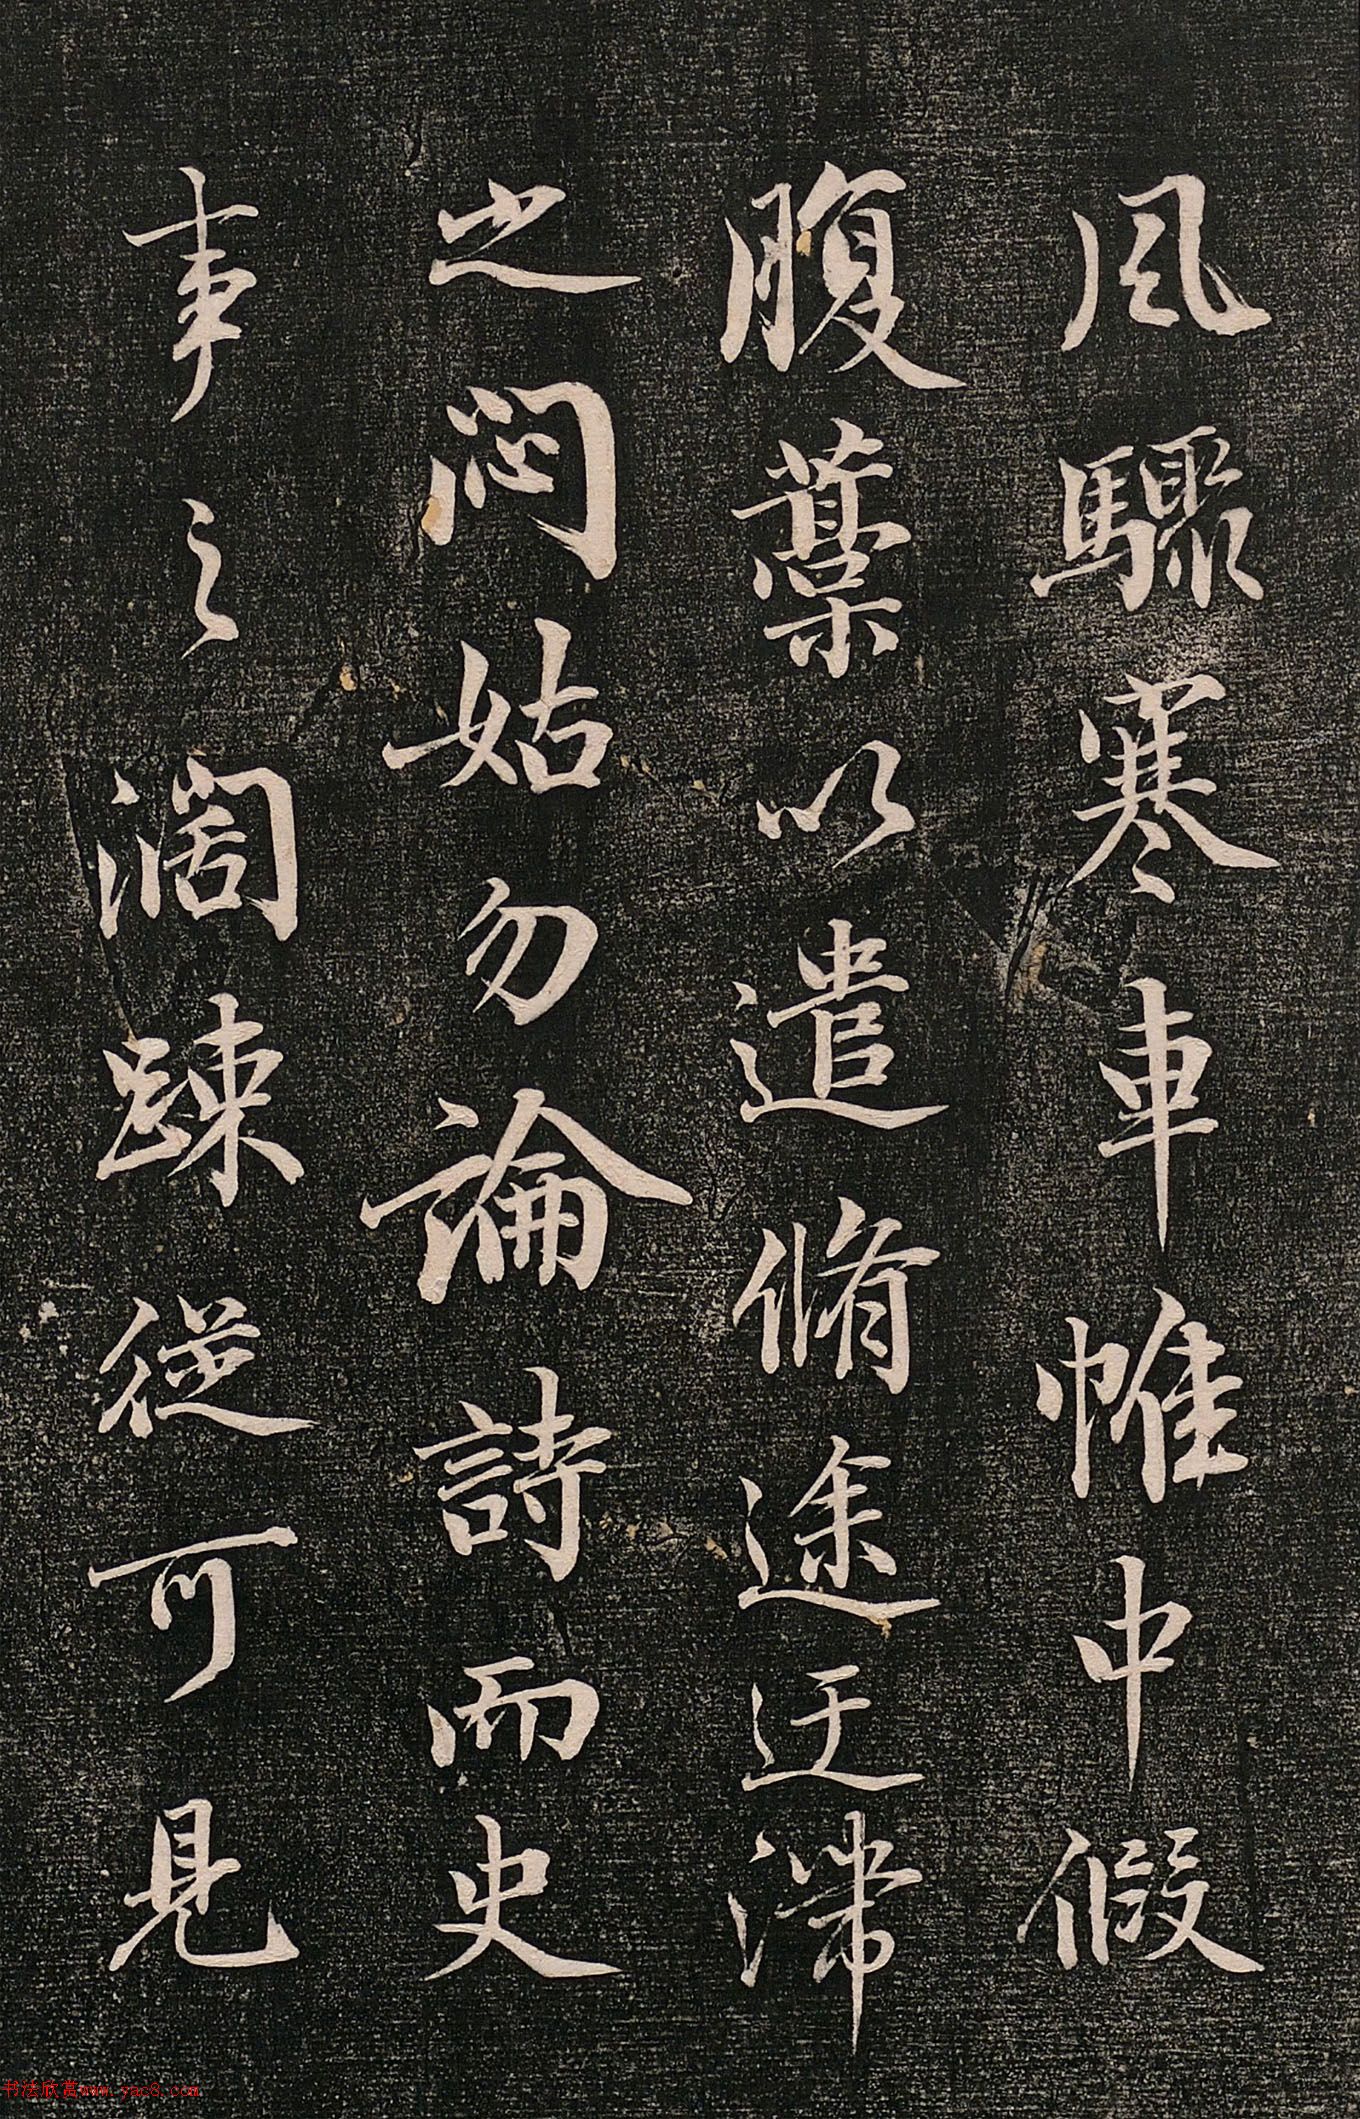 風驟寒車帷中假
腹藁以遣脩途迂滯
之悶姑勿論詩而史
事之濶踈從可見
书法欣赏www.yac8.com